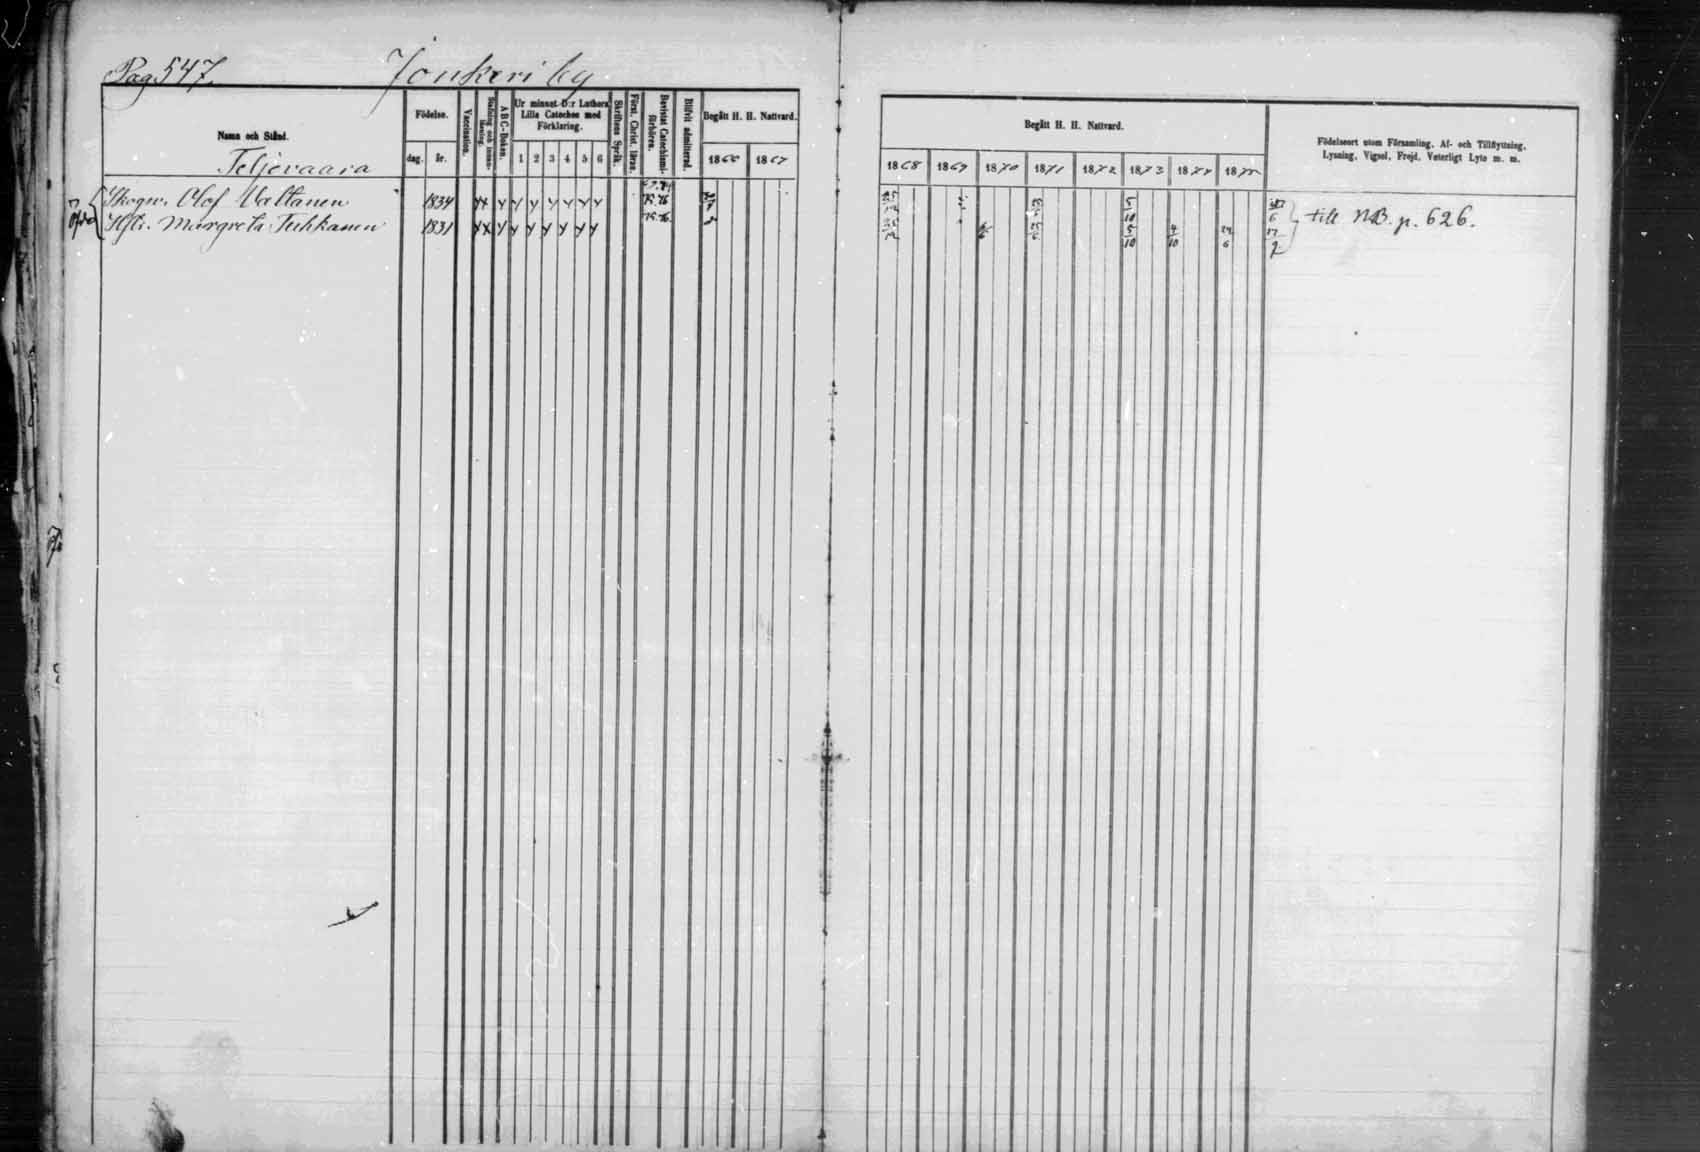 Pag 547. Jonkeri by
Namn och Stånd.
Födelse.
dag. år.
Vaccination.
ABC-Boken.
Ur minnet D:r Luthers
Lilla Cateches med
Förklaring.
1 2 3 4 5 6
Skriftens Språk.
Först. Christ. läran.
Bevistat Catechismi-
förhören.
Blifvit admitterad.
Begått H. H. Nattvard.
1866 1867
Teljevaara
Skogv. Olof Valtanen 1834
Hstr. Margreta Tuhkanen 1831
Begått H. H. Nattvard.
1868 1869 1870 1871 1872 1873 1874 1875
Födelseort utom Församling, Af- och Tillflyttning,
Lysning, Vigsel, Frejd, Veterligt Lyte m. m.
5/10
5/10 4/10
till NB. p. 626.